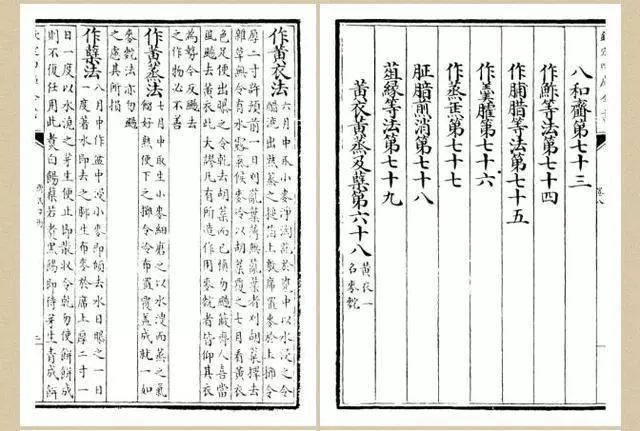 八和齏第七十三
作鮓等法第七十四
作脯腊等法第七十五
作羹臛第七十六
作蒸缹第七十七
胚腊煎消第七十八
菹緑等法第七十九
黃衣黃蒸及糵第六十八 黃衣一名麥䴷
作黃衣法 六月中取小麥淨淘訖於甕中以水浸之令
醋漉出熟蒸之槌箔上敷席置麥於上攤令
厚二寸許預前一日刈薍葉薄覆無薍葉者刈胡葈擇去
雜草無令有水露氣候麥冷以胡葈覆之七日看黃衣
色足便出曝之令乾去胡葈而已慎勿颺簸齊人喜當
風颺去黃衣此大謬凡有所造作用麥䴷者皆仰其衣
為勢今反颺去
之作物必不善
作黃蒸法 七月中取生小麥細磨之以水溲而蒸之氣
餾好熟便下之攤令冷布置覆蓋成就一如
麥䴷法亦勿颺
之慮其所損
作糵法 八月中作盆中浸小麥即傾去水日曝之一日
一度著水即去之脚生布麥於席上厚二寸一
日一度以水澆之芽生便止即散收令乾勿使餅餅成
則不復任用此煮白餳糵若煮黑餳即待芽生青成餅